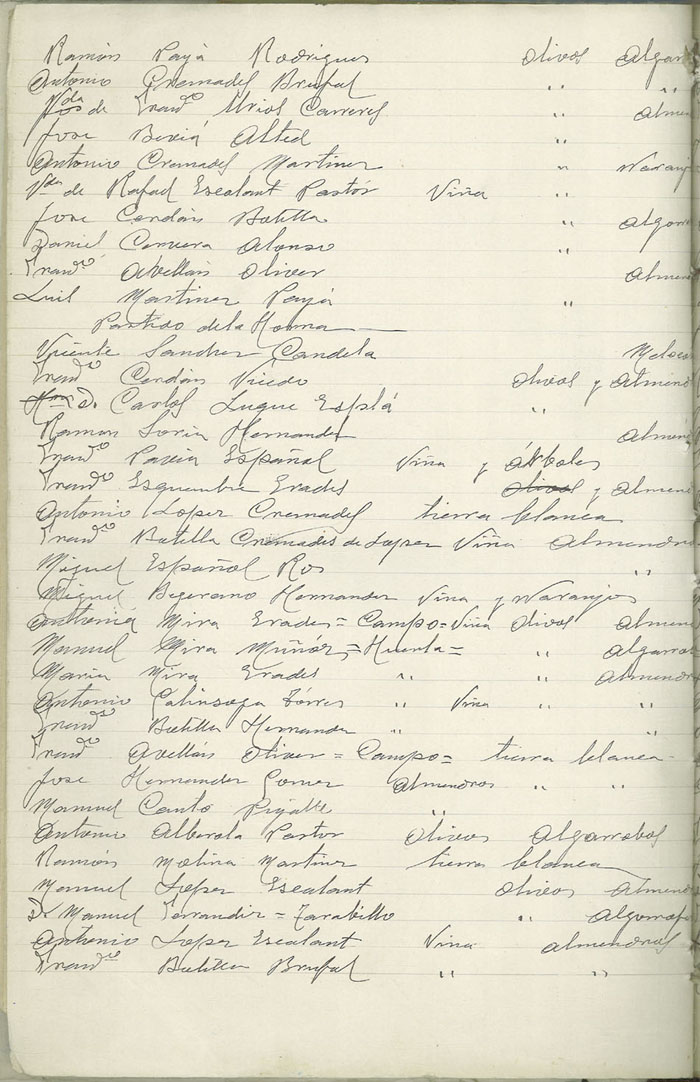 Ramón Payá Rodrigues olivos algar
Antonio Cremades Brufal " "
Vda de Franco Uriol Carreres " alme
Jose Bexiá Alted "
Antonio Cremades Martinez " Naranj
Vda de Rafael Escalant Pastór Viña "
Jose Cerdán Botella " algarr
Daniel Cervera Alonso "
Franco Avellán Oliver almen
Luis Martinez Payá "
Partido de la Horna
Vicente Sanchez Candela Meloc
Franco Cerdán Vicedo olivos y almend
D. Carlos Luque Esplá "
Ramon Soria Hernandez almen
Franco Pavia Español Viña y árboles
Franco Esquembre Erades olivos y almen
Antonio Lopez Cremades tierra blanca
Franco Botella Cremades de Lopez Viña Almendro
Miguel Español Ros "
Miguel Bejerano Hernandez Viña y Naranjos
Antonia Mira Erades = Campo = Viña olivos almen
Manuel Mira Muñóz = Huerta = " algarrob
Maria Mira Erades " " almendro
Antonio Galinsoga Tórres " Viña " "
Franco Botella Hernandez " "
Franco Avellán Oliver = Campo = tierra blanca
Jose Hernandez Gomez Almendros " "
Manuel Cantó "
Antonio Alberola Pastor Olivos Algarrobos
Ramón Molina Martinez tierra blanca
Manuel Lopez Escalant olivos almend
D. Manuel Ferrandiz = Zarabillo " algarrob
Antonio Lopez Escalant Viña almendros
Franco Botella Brufal " "